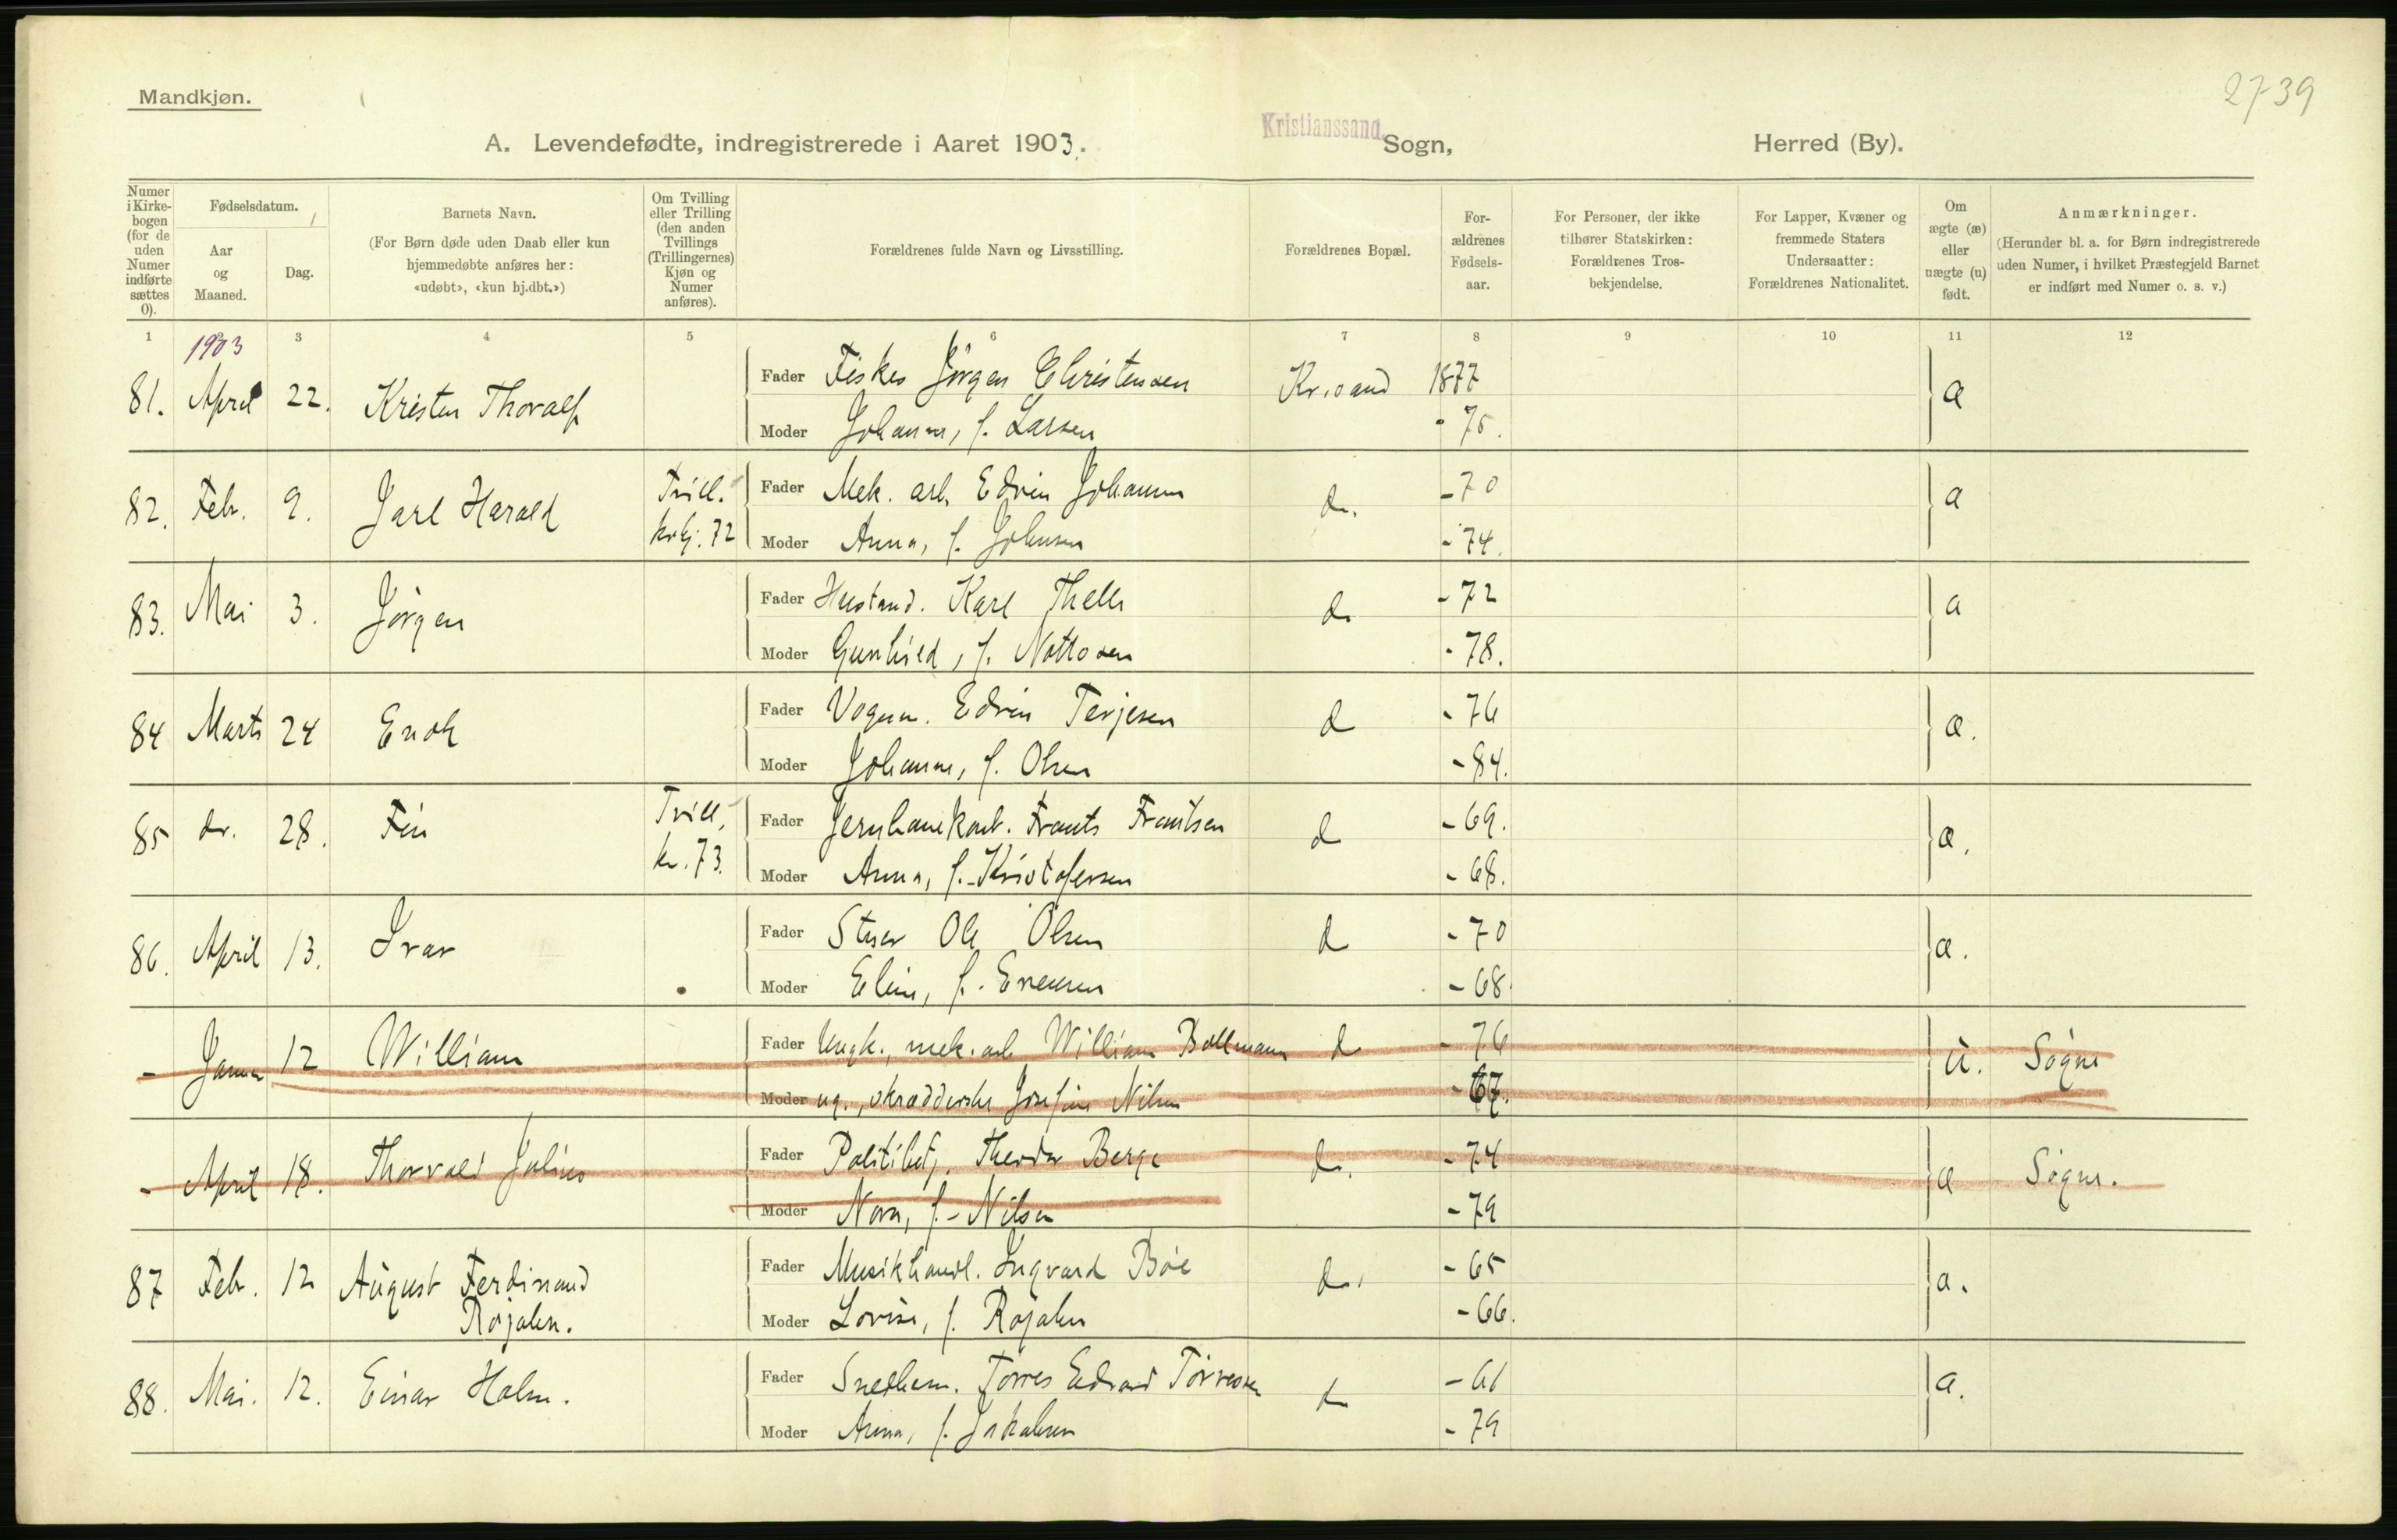 2739
Mandkjøn.
A. Levendefødte, indregistrerede i Aaret 1903. Kristianssand. Sogn, Herred (By).
Numer i Kirkebogen (for de uden Numer indførte sættes 0).
Fødselsdatum.
Aar og Maaned.
Dag.
Barnets Navn.
(For Børn døde uden Daab eller kun hjemmedøbte anføres her: «udøbt», «kun hj.dbt.»)
Om Tvilling eller Trilling (den anden Tvillings (Trillingernes) Kjøn og Numer anføres).
Forældrenes fulde Navn og Livsstilling.
Forældrenes Bopæl.
Forældrenes Fødselsaar.
For Personer, der ikke tilhører Statskirken: Forældrenes Trosbekjendelse.
For Lapper, Kvæner og fremmede Staters Undersaatter: Forældrenes Nationalitet.
Om ægte (æ) eller uægte (u) født.
Anmærkninger.
(Herunder bl. a. for Børn indregistrerede uden Numer, i hvilket Præstegjeld Barnet er indført med Numer o. s. v.)
1 3 4 5 6 7 8 9 10 11 12
1903
81. April 22. Kristen Thoralf Fader Fisker Jörgen Christensen Kr.sand 1877 æ
Moder Johanne, f. Larsen - 75.
82. Feb. 9. Jarl Harald Tvill. kvkj. 72 Fader Mek. arb. Edvin Johannn d. - 70 æ
Moder Anna, f. Johnsen - 74.
83. Mai 3. Jörgen Fader Karl d. - 72 æ
Moder Gunhild, f. Nottosen - 78.
84 Marts 24 Enok Fader Vognm. Edvin Terjesen d - 76 æ.
Moder Johanne, f. Olsen - 84.
85 do. 28. Fin Tvill. kv. 73. Fader Jernbanekont. Frants Frantsen d - 69. æ.
Moder Anna, f. Kristofersen - 68.
86. April 13. Ivar Fader Stuer Ole Olsen d - 70 æ.
Moder Eline, f. Evensen - 68.
- Januar 12 William Fader Ungk., mek. arb William Bollmann d - 76 u. Søgne
Moder ug., skrædderske Josefine Nilsen - 67.
- April 18. Thorvald Julius Fader Politibetj. Theodor Berge d. - 74 æ Søgne.
Moder Nora, f. Nilsen - 79
87 Feb. 12 August Ferdinand Röjahn. Fader Musikhandl. Ingvard Böe d. - 65 æ.
Moder Lovise, f. Röjahn - 66.
88. Mai. 12. Einar Holm. Fader Snedkerm. Torres Edvard Törressen d - 61 æ.
Moder Anna, f. Jakobsen - 79